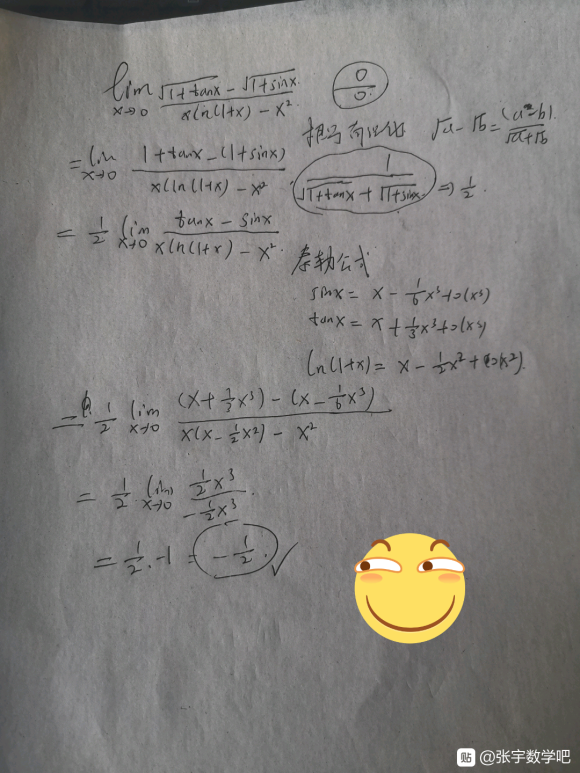 lim x→0 (√(1+tanx) - √(1+sinx)) / (x ln(1+x) - x²)  0/0
√a - √b = (a-b) / (√a+√b)
= lim x→0 (1+tanx-(1+sinx)) / (x ln(1+x) - x²) · 1 / (√(1+tanx) + √(1+sinx)) ⇒ 1/2.
= 1/2 lim x→0 (tanx - sinx) / (x ln(1+x) - x²).
泰勒公式
sinx = x - 1/6 x³ + o(x³)
tanx = x + 1/3 x³ + o(x³)
ln(1+x) = x - 1/2 x² + o(x²).
= 1/2 lim x→0 ((x + 1/3 x³) - (x - 1/6 x³)) / (x(x - 1/2 x²) - x²)
= 1/2 lim x→0 (1/2 x³) / (-1/2 x³).
= 1/2 · -1 = -1/2. ✓
贴 @张宇数学吧